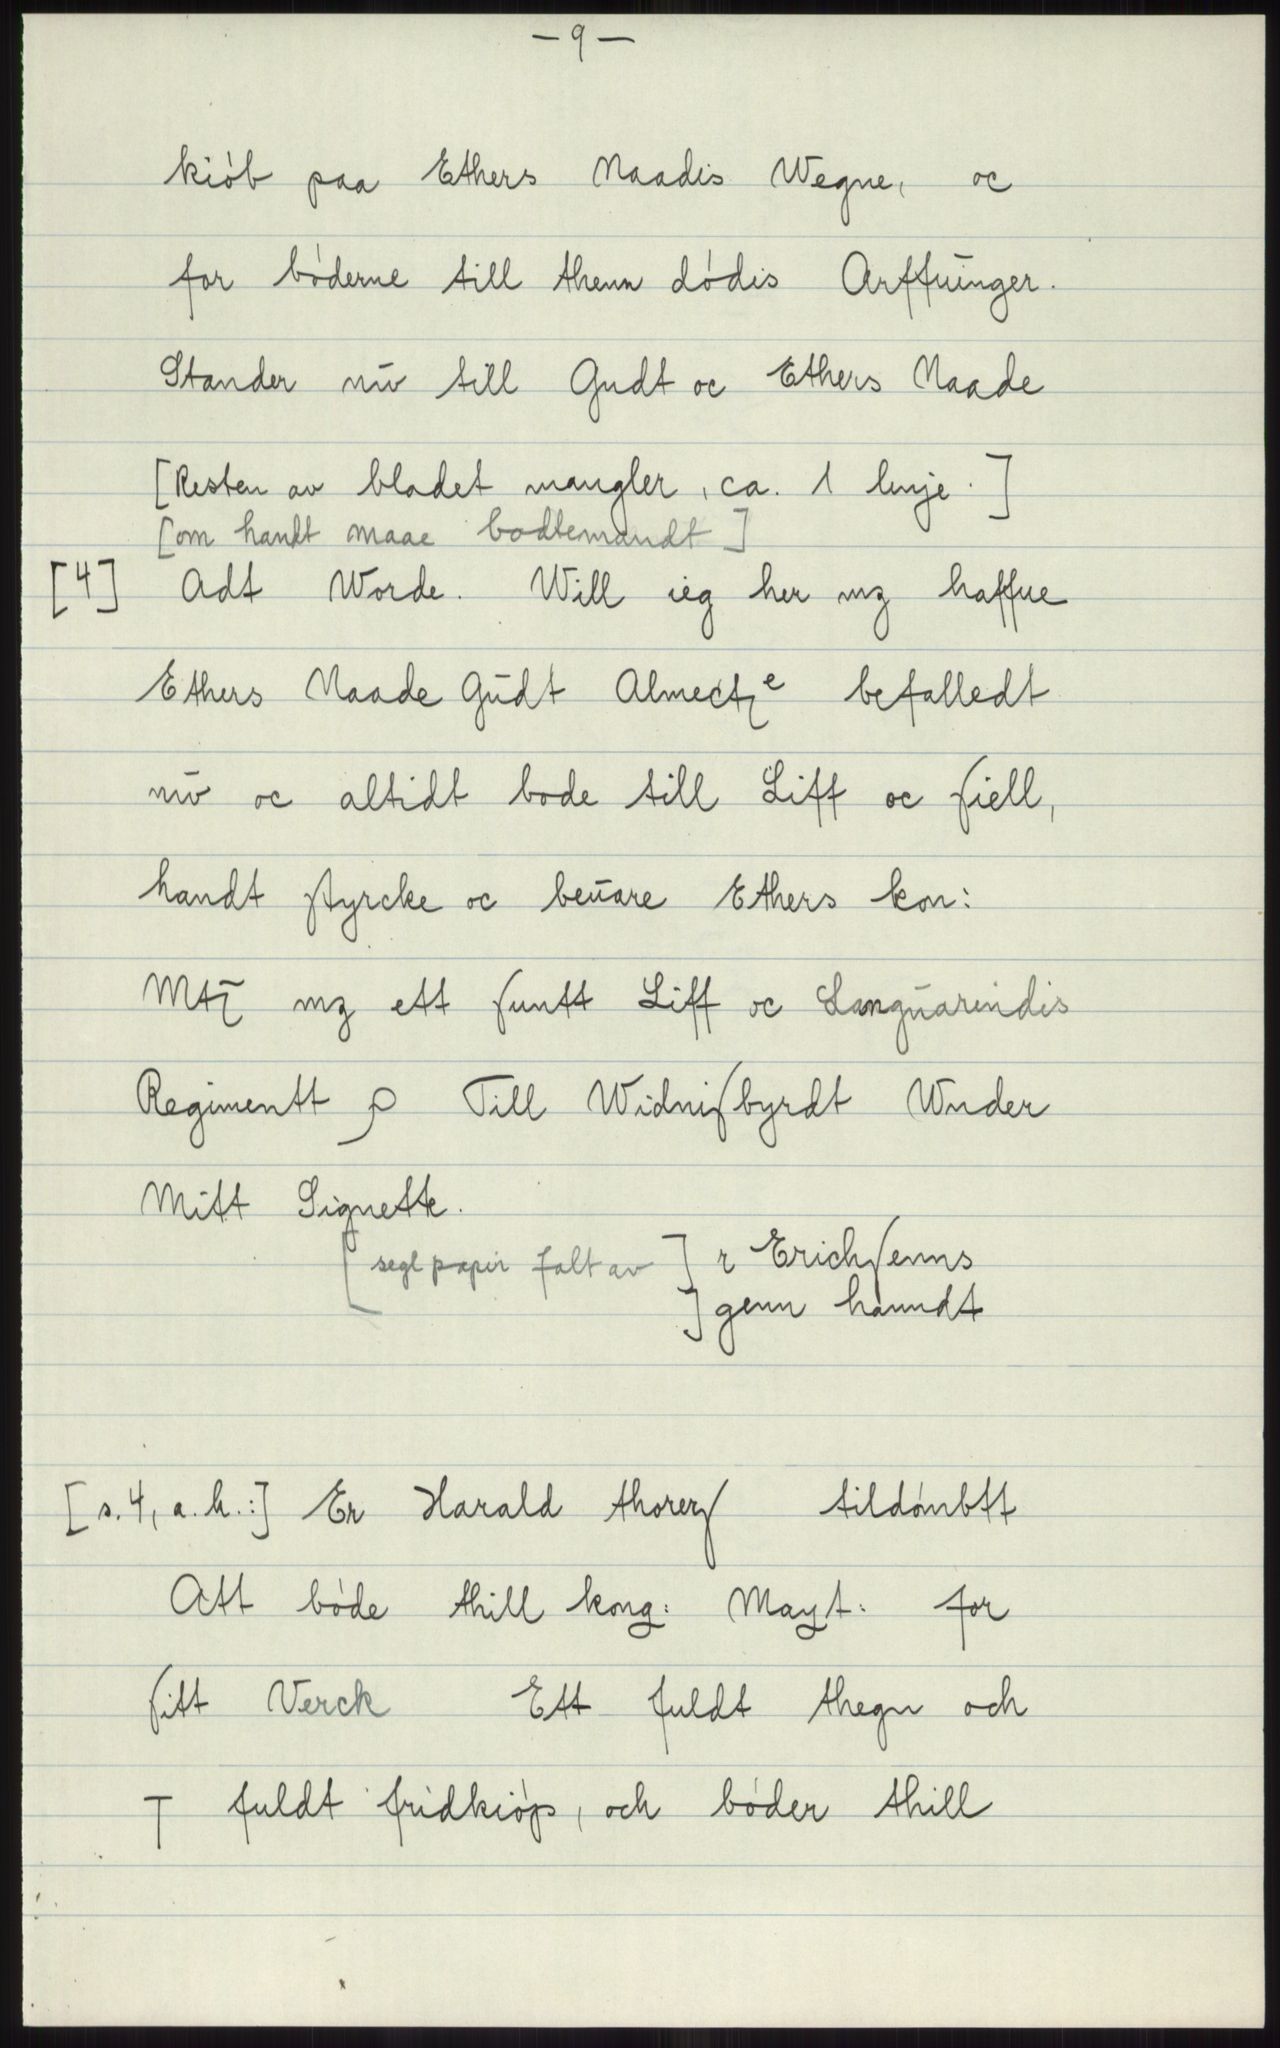 — 9 —
kiób paa Ethers Naadis Wegne, oc
for bóderne till thenn dódis Arffuinger.
Stander nu till Gudt oc Ethers Naade
[Resten av bladet mangler, ca. 1 linje.]
[om handt maae bodtemandt]
[4] Adt Worde. Will ieg her mz haffue
Ethers Naade Gudt Almectze befalledt
nu oc altidt bode till Liff oc ſiell,
handt ſtyrcke oc beuare Ethers kon:
Mtz mz ett ſuntt Liff oc Languarindis
Regimentt Till Widniſbyrdt Wnder
Mitt Signette.
[segl papir falt av] r Erichſenns
] genn hanndt
[s. 4, a. h.:] Er Harald thorerſ tildómbtt
Att bóde thill kong: Mayt: for
ſitt Verck Ett fuldt thegn och
fuldt fridkióp, och bóder thill